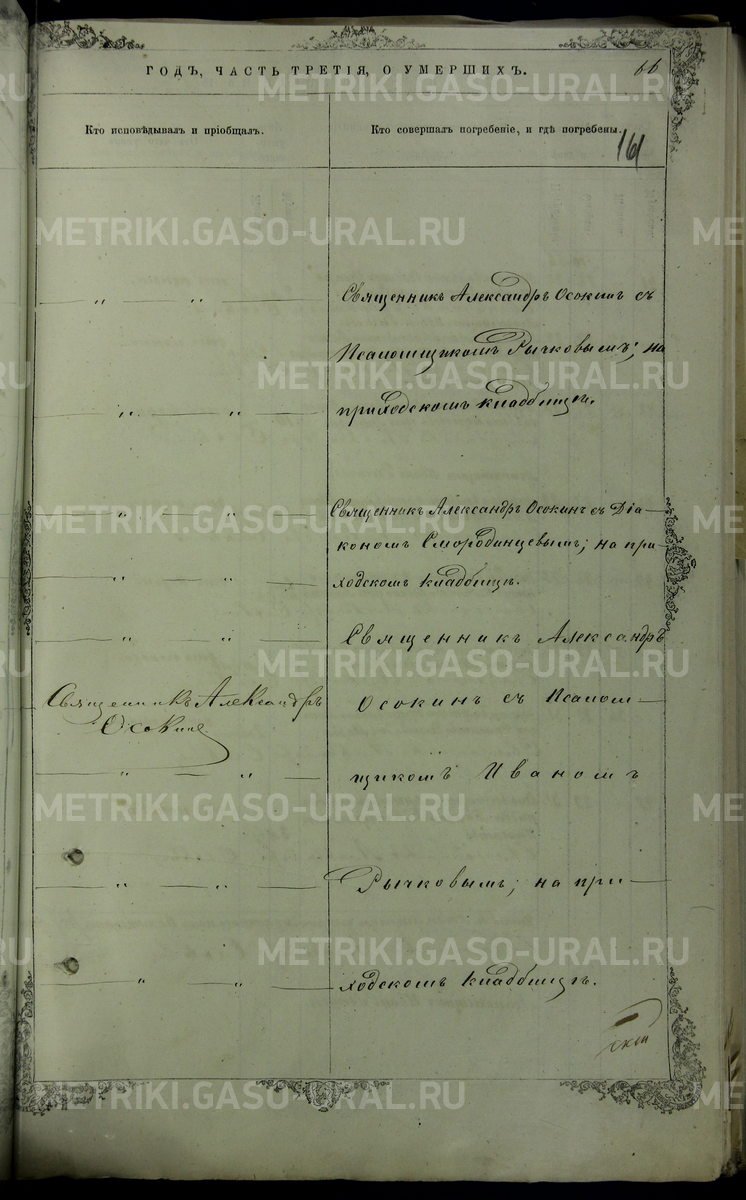 66
ГОДЪ, ЧАСТЬ ТРЕТІЯ, О УМЕРШИХЪ.
Кто исповѣдывалъ и пріобщалъ.
Кто совершалъ погребеніе, и гдѣ погребены.
161
METRIKI.GASO-URAL.RU
Священникъ Александръ Осокинъ съ
Псаломщикомъ Рычковымъ; на
приходскомъ кладбищѣ.
Священникъ Александръ Осокинъ съ Діа-
кономъ Смородинцевымъ; на при-
ходскомъ кладбищѣ.
Священникъ Александръ
Священникъ Александръ
Осокинъ
Осокинъ съ Псалом-
щикомъ Иваномъ
Рычковымъ; на при-
ходскомъ кладбищѣ.